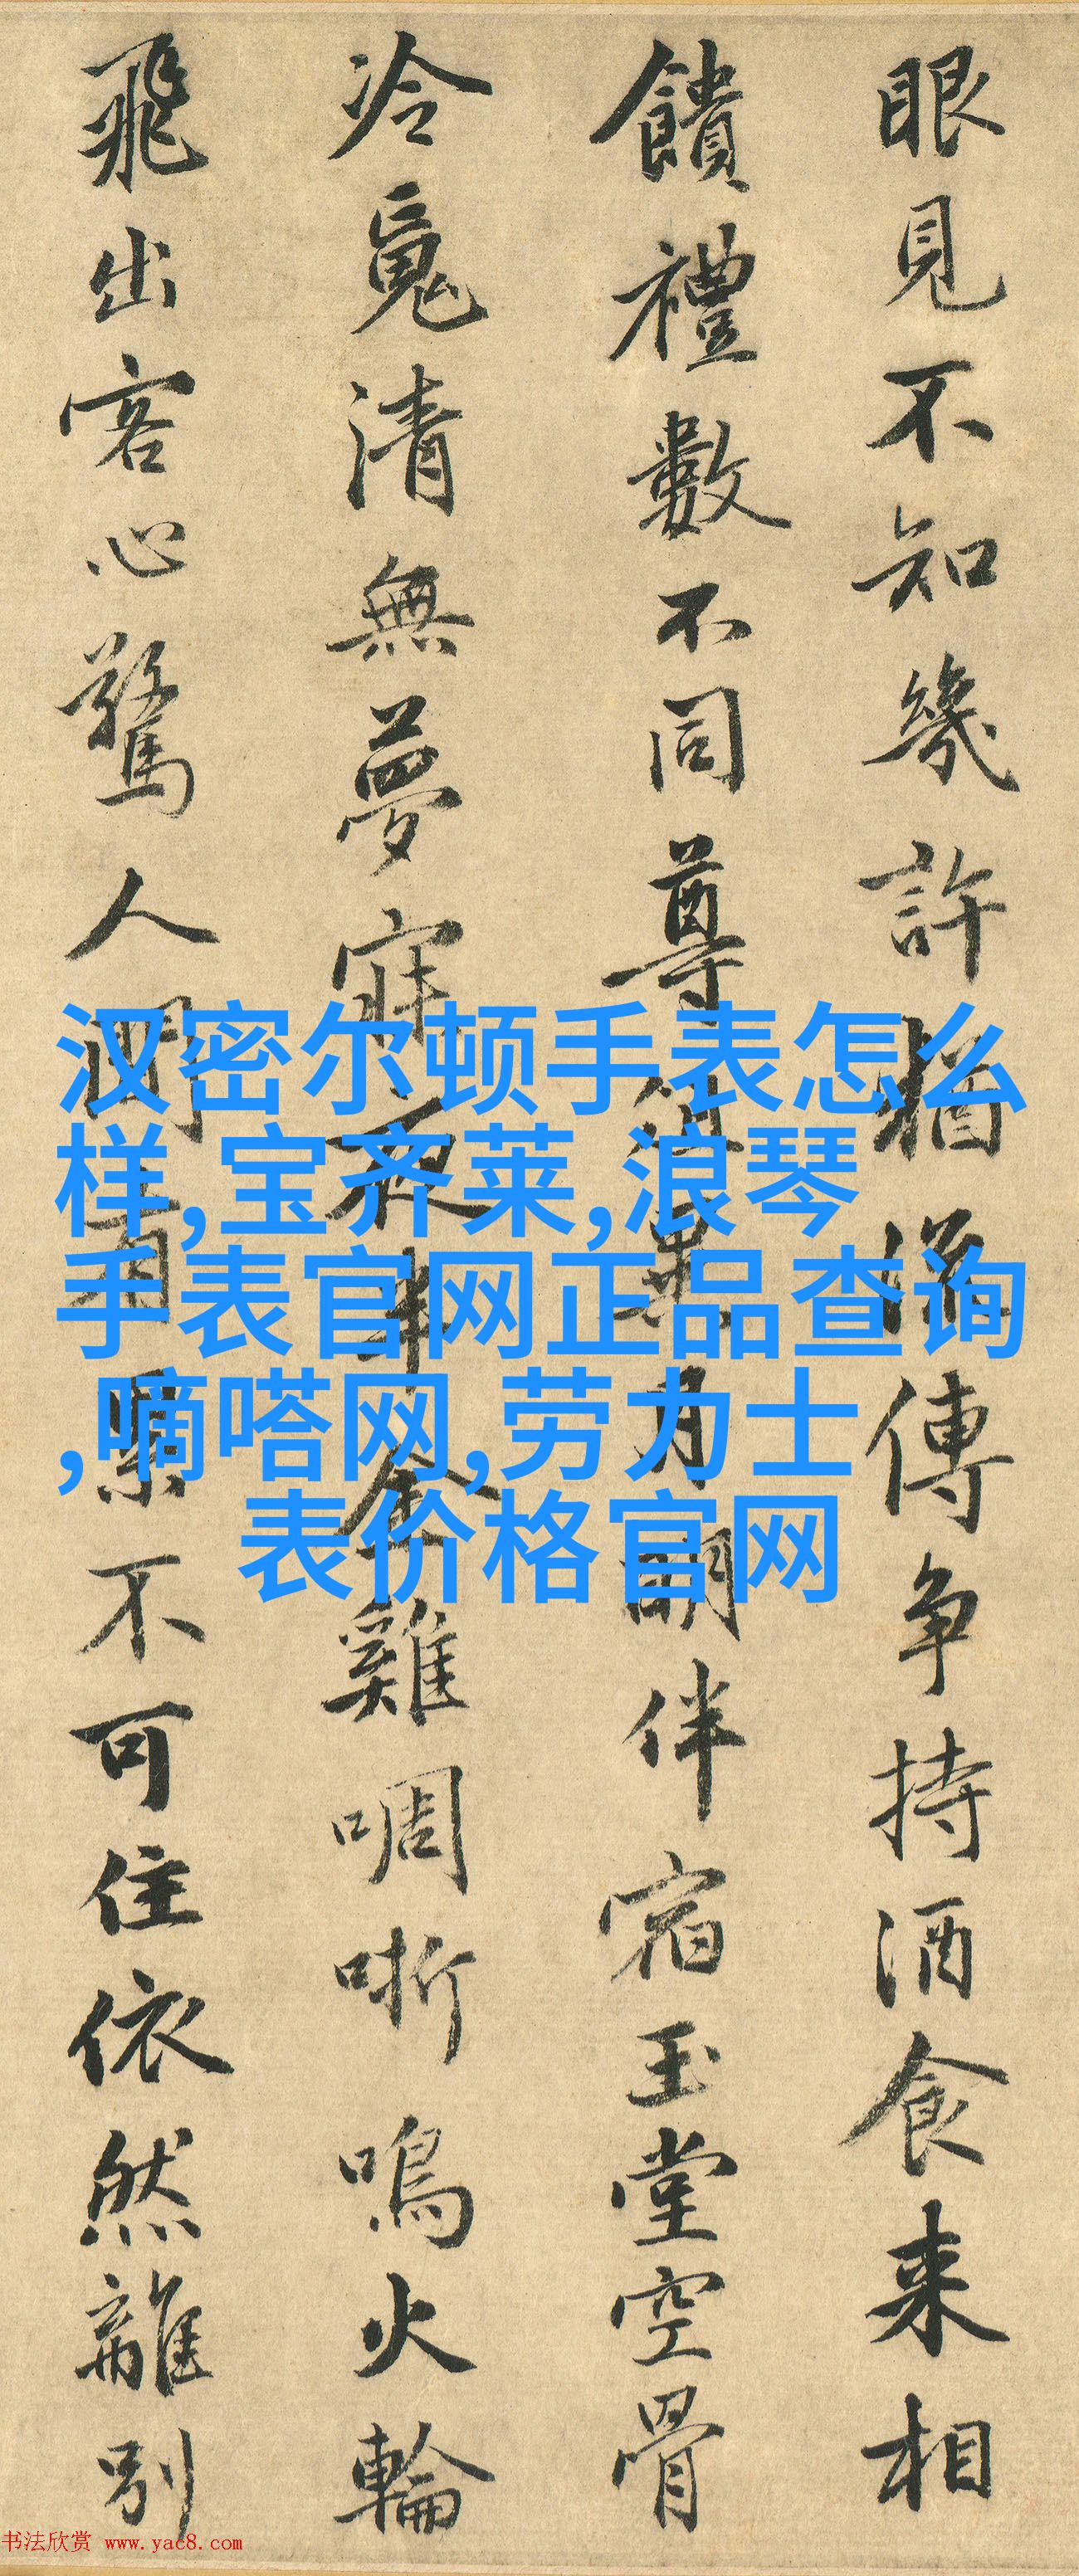 眼見不知幾許猶流傳争持酒食来相
饋禮數不同尊俎異月明伴宿玉堂空骨
冷魂清無夢寐夜半金雞啁哳鳴火輪
飛出客心驚人間有累不可住依然離別
汉密尔顿手表怎么
样,宝齐莱,浪琴
手表官网正品查询
,嘀嗒网,劳力士
表价格官网
书法欣赏 www.yac8.com